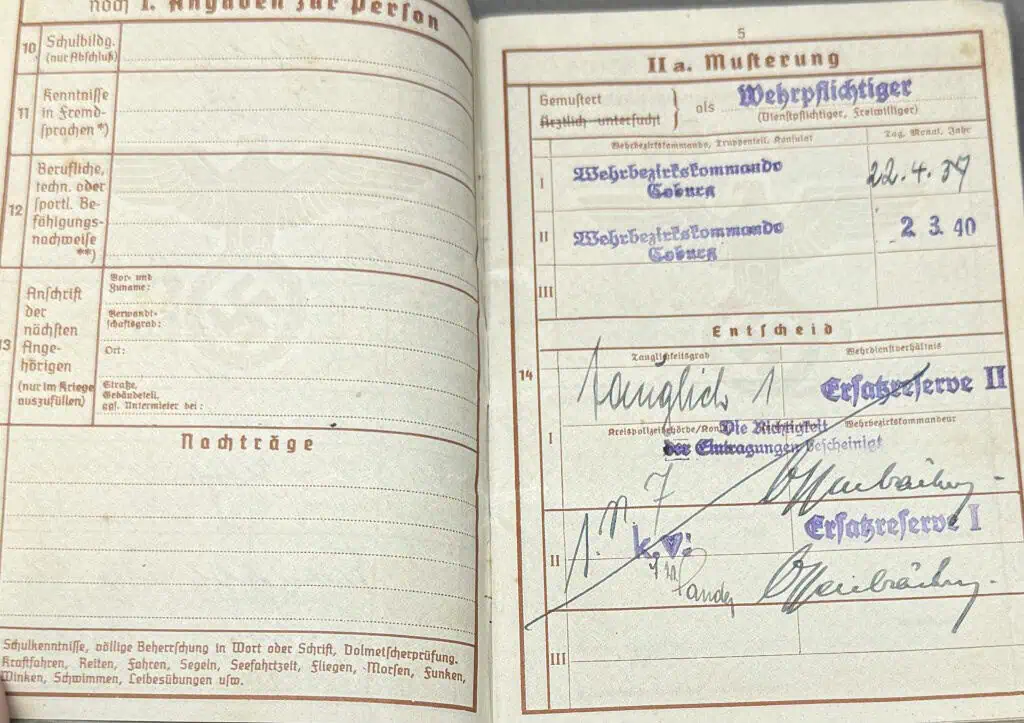 noch I. Angaben zur Person
10 Schulbildg.
(nur Abschluß)
11 Kenntnisse
in Fremd-
sprachen *)
12 Berufliche,
techn. oder
sportl. Be-
fähigungs-
nachweise
**)
13 Anschrift
der
nächsten
Ange-
hörigen
(nur im Kriege
auszufüllen)
Vor- und
Zuname:
Verwandt-
schaftsgrad:
Ort:
Straße,
Gebäudeteil,
ggf. Untermieter bei:
Nachträge
Schulkenntnisse, völlige Beherrschung in Wort oder Schrift, Dolmetscherprüfung.
Kraftfahren, Reiten, Fahren, Segeln, Seefahrtzeit, Fliegen, Morsen, Funken,
Winken, Schwimmen, Leibesübungen usw.
5
II a. Musterung
Gemustert
Ärztlich untersucht
als Wehrpflichtiger
(Dienstpflichtiger, Freiwilliger)
Wehrbezirkskommando, Truppenteil, Konsulat
Tag, Monat, Jahr
I Wehrbezirkskommando
Coburg
22.4.37
II Wehrbezirkskommando
Coburg
2 3. 40
III
Entscheid
14
Tauglichkeitsgrad
Wehrdienstverhältnis
tauglich 1
Ersatzreserve II
I
Die Richtigkeit
der Eintragungen bescheinigt
Wehrbezirkskommandeur
II
k.v.
Ersatzreserve I
III